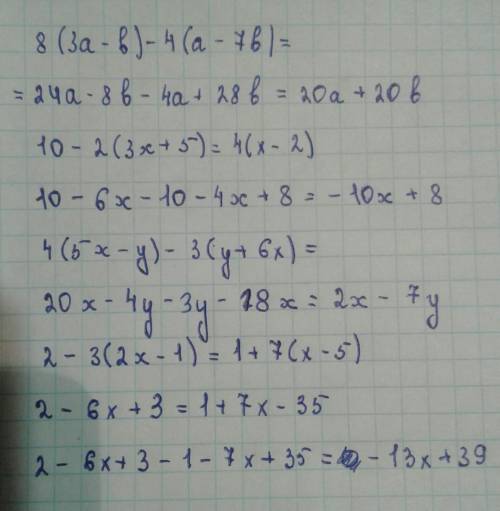 8(3a - в) - 4(a - 7в) =
= 24a - 8в - 4a + 28в = 20a + 20в
10 - 2(3x + 5) = 4(x - 2)
10 - 6x - 10 - 4x + 8 = - 10x + 8
4(5x - y) - 3(y + 6x) =
20x - 4y - 3y - 18x = 2x - 7y
2 - 3(2x - 1) = 1 + 7(x - 5)
2 - 6x + 3 = 1 + 7x - 35
2 - 6x + 3 - 1 - 7x + 35 = - 13x + 39